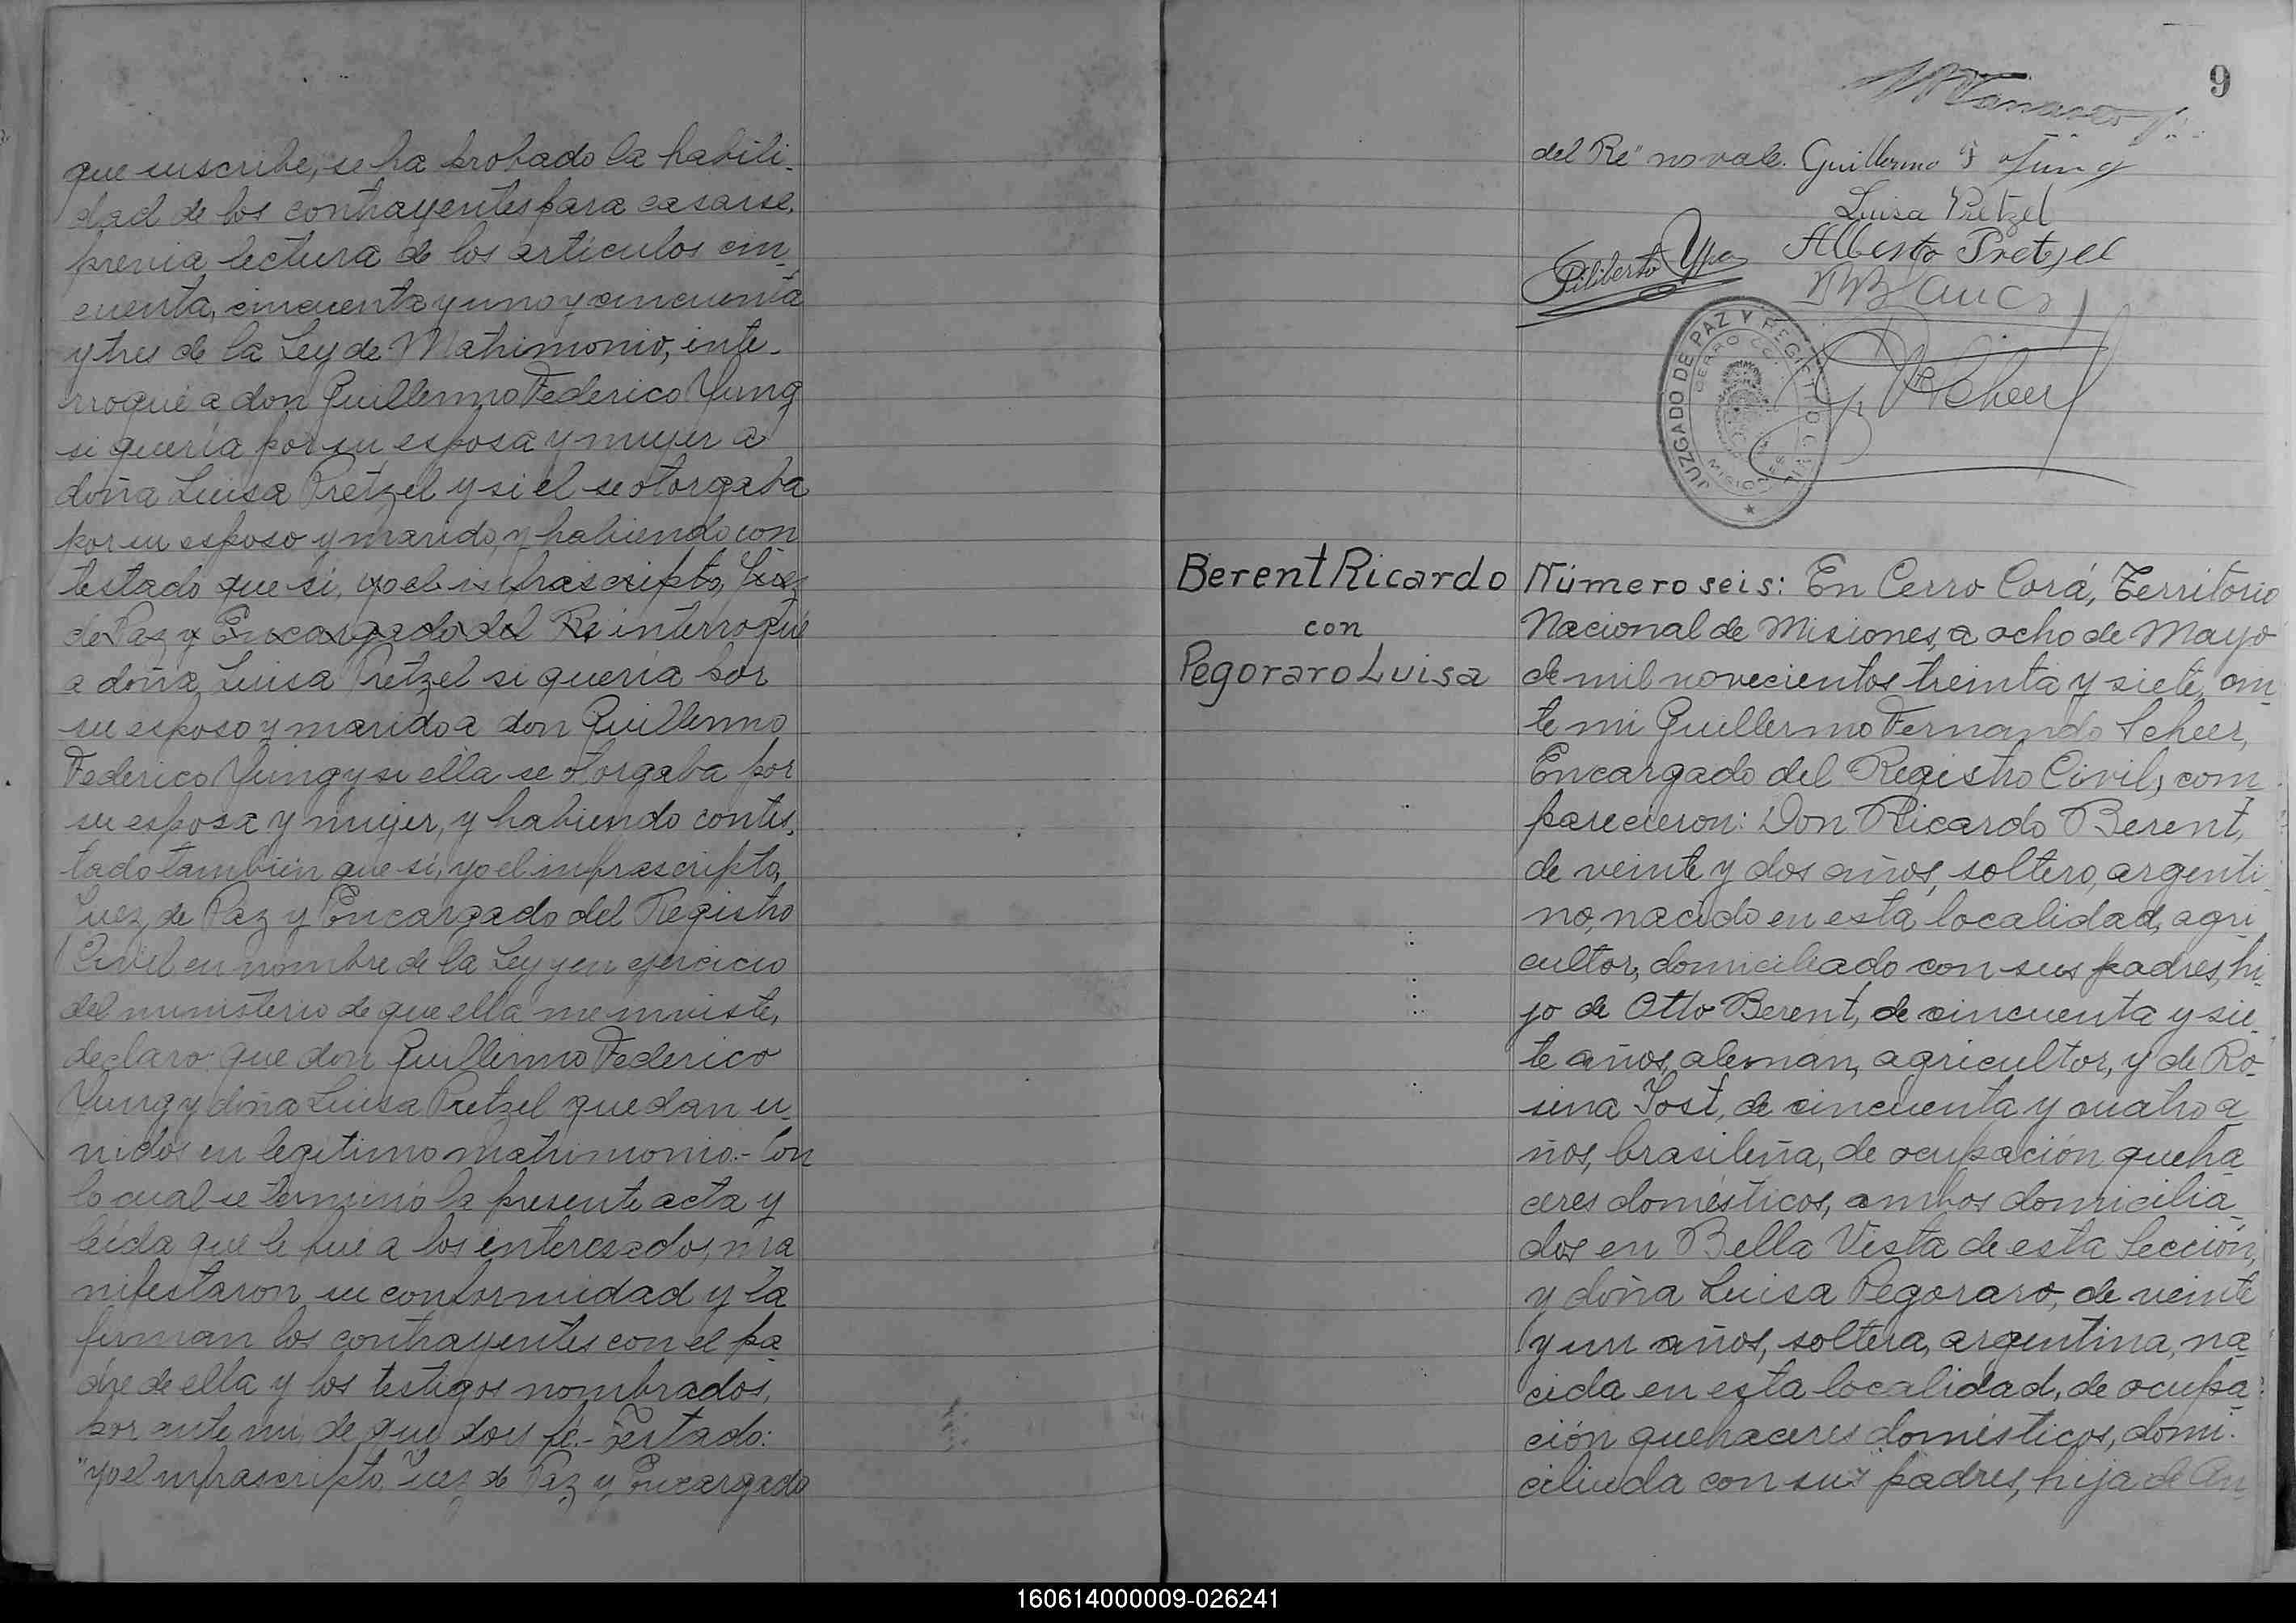 que suscribe, se ha probado la habili-
dad de los contrayentes para casarse,
previa lectura de los artículos cin-
cuenta, cincuenta y uno y cincuenta
y tres de la Ley de Matrimonio, inte-
rrogué a don Guillermo Federico Yung
si quería por su esposa y mujer a
doña Luisa Pretzel y si el se otorgaba
por su esposo y marido, y habiendo con
testado que si, yo el infrascripto, Juez
de Paz y Encargado del Re interrogué
a doña Luisa Pretzel si quería por
su esposo y marido a don Guillermo
Federico Yung y si ella se otorgaba por
su esposa y mujer, y habiendo contes-
tado también que si, yo el infrascripto,
Juez de Paz y Encargado del Registro
Civil en nombre de la Ley y en ejercicio
del ministerio de que ella me inviste,
declaro que don Guillermo Federico
Yung y doña Luisa Pretzel quedan u-
nidos en legítimo matrimonio.- Con
lo cual se terminó la presente acta y
leída que le fué a los interesados, ma
nifestaron su conformidad y la
firman los contrayentes con el pa-
dre de ella y los testigos nombrados,
por ante mi de que doy fé.- Testado:
"yo el infrascripto, Juez de Paz y Encargado
9
del Re" no vale. Guillermo F Yung
Luisa Pretzel
Alberto Pretzel
Filiberto
Scheer
JUZGADO DE PAZ Y REGISTRO CIVIL
CERRO CO
MISIONES
Berent Ricardo
con
Pegoraro Luisa
Número seis: En Cerro Corá, Territorio
Nacional de Misiones, a ocho de Mayo
de mil novecientos treinta y siete, an-
te mi Guillermo Fernando Scheer,
Encargado del Registro Civil, com
parecieron: Don Ricardo Berent,
de veinte y dos años, soltero, argenti-
no, nacido en esta localidad, agri-
cultor, domiciliado con sus padres, hi-
jo de Otto Berent, de cincuenta y sie-
te años, aleman, agricultor, y de Ro-
sina Jost, de cincuenta y cuatro a-
ños, brasileña, de ocupación queha-
ceres domésticos, ambos domicilia-
dos en Bella Vista de esta Sección,
y doña Luisa Pegoraro, de veinte
y un años, soltera, argentina, na-
cida en esta localidad, de ocupa-
ción quehaceres domésticos, domi-
ciliada con sus padres, hija de An-
160614000009-026241